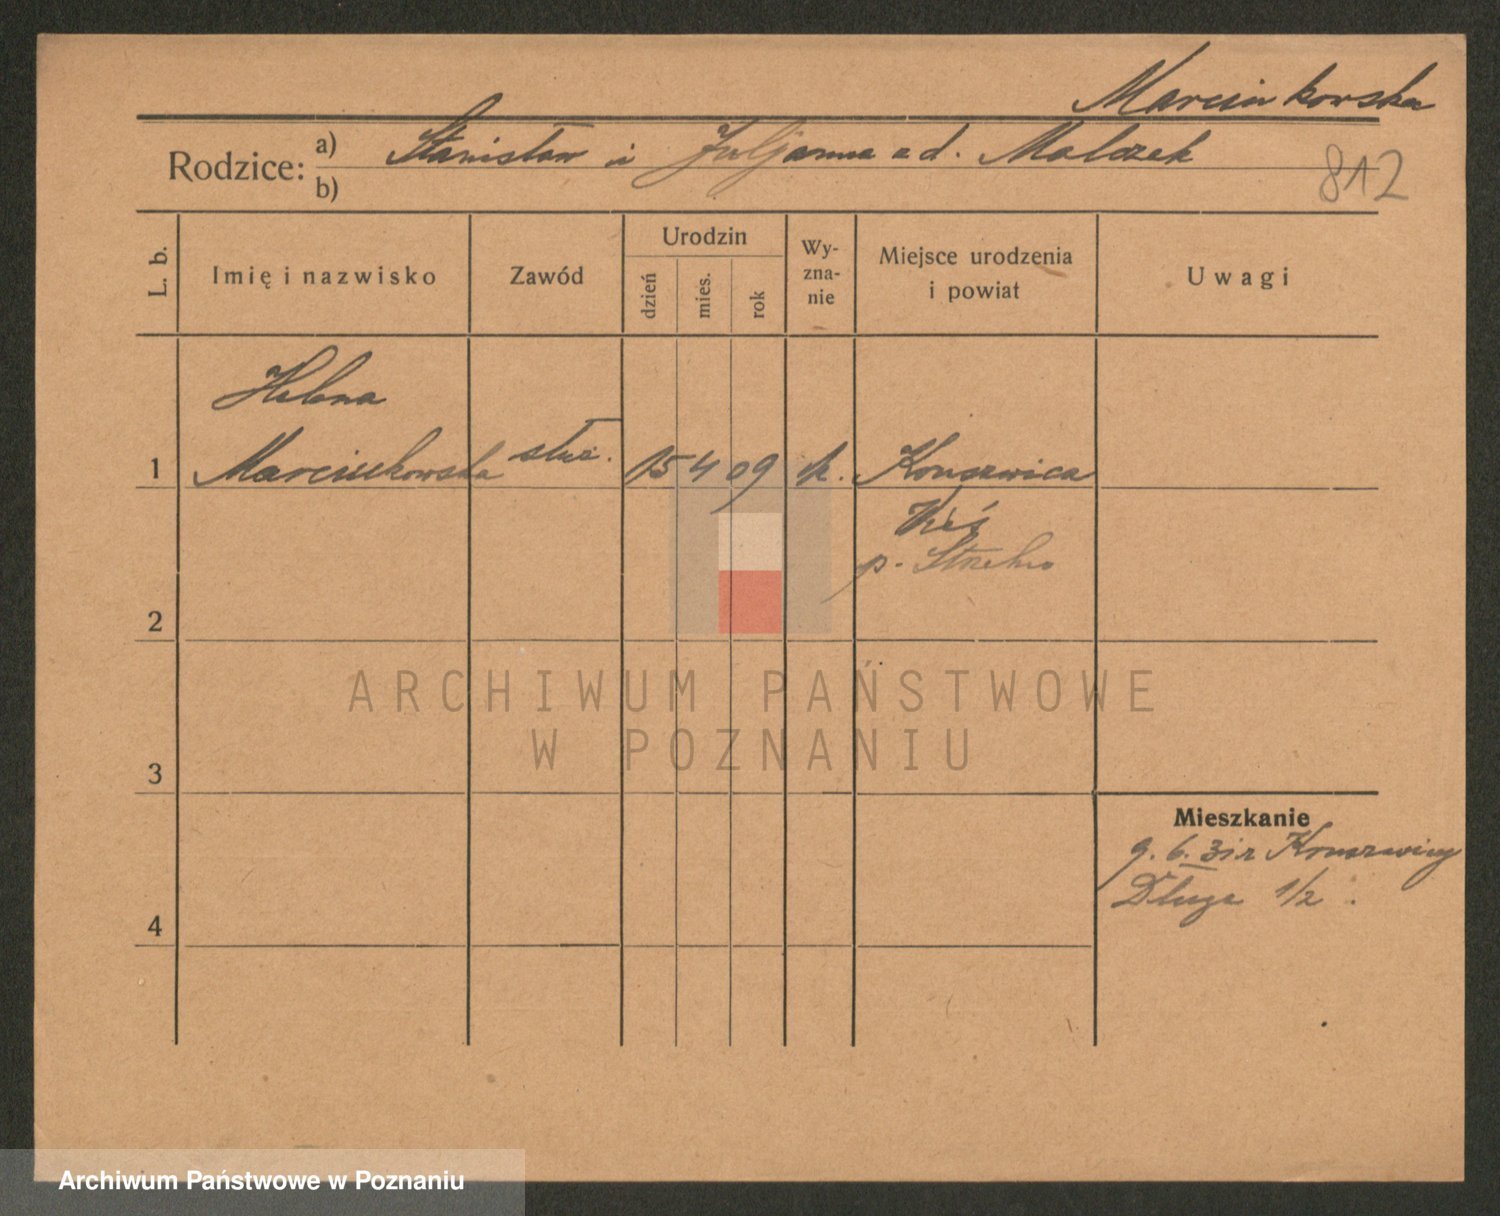 Marcinkowska
Rodzice: a) Stanisław i Juljanna z d. Malczek
b)
812
L. b.
Imię i nazwisko
Zawód
Urodzin
dzień
mies.
rok
Wy-
zna-
nie
Miejsce urodzenia
i powiat
Uwagi
Helena
1 Marcinkowska służ. 15 4 09 k. Kruszwica
Wieś
p. Strzelno
2
3
4
Mieszkanie
9. 6. 31 z Kruszwicy
Długa 1/2.
ARCHIWUM PAŃSTWOWE
W POZNANIU
Archiwum Państwowe w Poznaniu